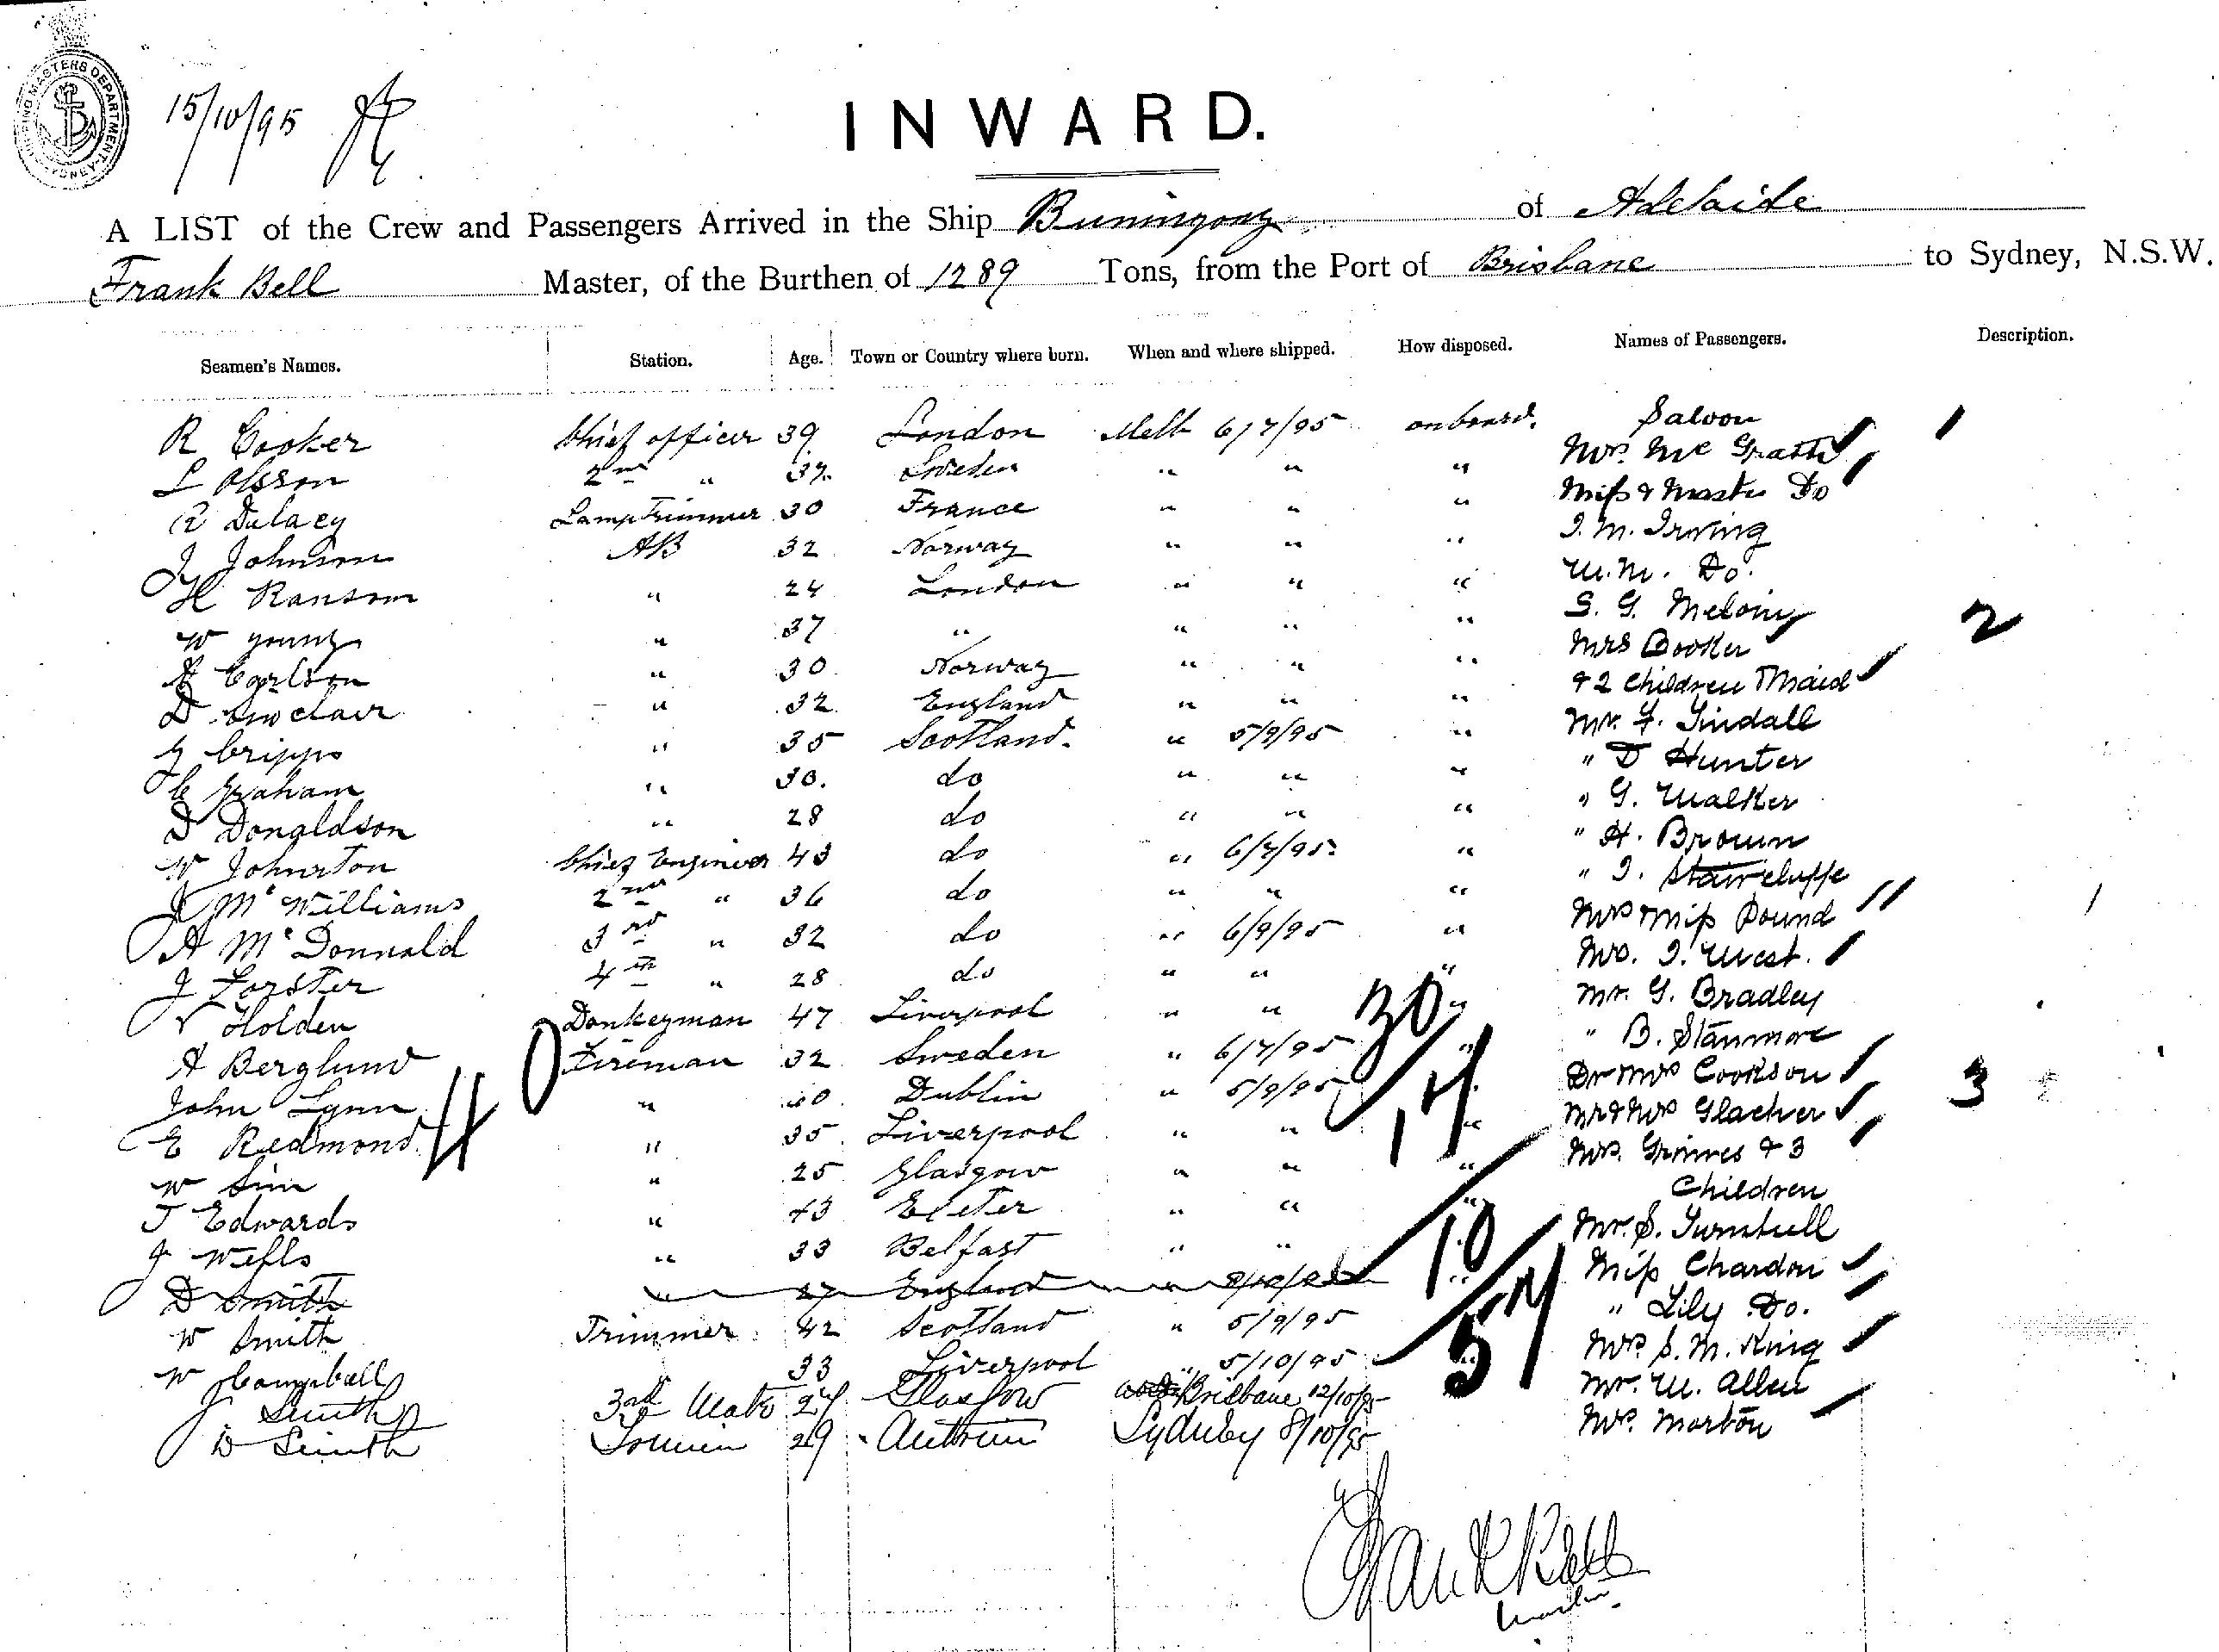 SHIPPING MASTERS DEPARTMENT SYDNEY
15/10/95
INWARD.
A LIST of the Crew and Passengers Arrived in the Ship Buningong of Adelaide
Frank Bell Master, of the Burthen of 1289 Tons, from the Port of Brisbane to Sydney, N.S.W.
Seamen's Names. Station. Age. Town or Country where born. When and where shipped. How disposed. Names of Passengers. Description.
R Cooker Chief officer 39 London Melb 6/7/95 on board. Saloon 1
L Olsson 2nd " 37. Sweden " " " Mrs. McGrath
R Dulacy Lamp Trimmer 30 France " " " Miss & Master Do
J Johnson AB 32 Norway " " " J. M. Irving
H Ransom " 24 London " " " W. M. Do.
W Young " 37 " " " " S. G. Melony 2
A Carlson " 30 Norway " " " Mrs Booker
D Sinclair " 32 England " " " & 2 Children Maid
J Cripps " 35 Scotland. " 5/9/95 " Mr. F. Tindall
C Graham " 30. do " " " " D Hunter
D Donaldson " 28 do " " " " G. Walker
W Johnston Chief Engineer 43 do " 6/7/95 " " H. Brown
J McWilliams 2nd " 36 do " " " " J. Staincluffe
A McDonnald 3rd " 32 do " 6/9/95 " Mrs & Miss Pound 1
J Forster 4th " 28 do " " " Mrs. J. West.
V Holden Donkeyman 47 Liverpool " " " Mr. G. Bradley
A Berglund Fireman 32 Sweden " 6/7/95 " " B. Stanmore
John Lynn " 40 Dublin " 5/9/95 " Dr & Mrs Cookson 3
E Redmond " 35 Liverpool " " " Mr & Mrs Glacher
W Sim " 25 Glasgow " " " Mrs. Grimes & 3
J Edwards " 43 Exeter " " " Children
J Wells " 33 Belfast " " Mr. S. Turnbull
D Smith " 27 England " " Miss Chardon
W Smith Trimmer 42 Scotland " 5/9/95 " Lily Do.
W Campbell 33 Liverpool " 5/10/95 " Mrs. S. M. King
J Smith 3rd Mate 27 Glasgow Brisbane 12/10/95 Mr. W. Allen
D Smith 29 Antrim Sydney 8/10/95 Mrs. Morton
30
14
10
57
Frank Bell
Master